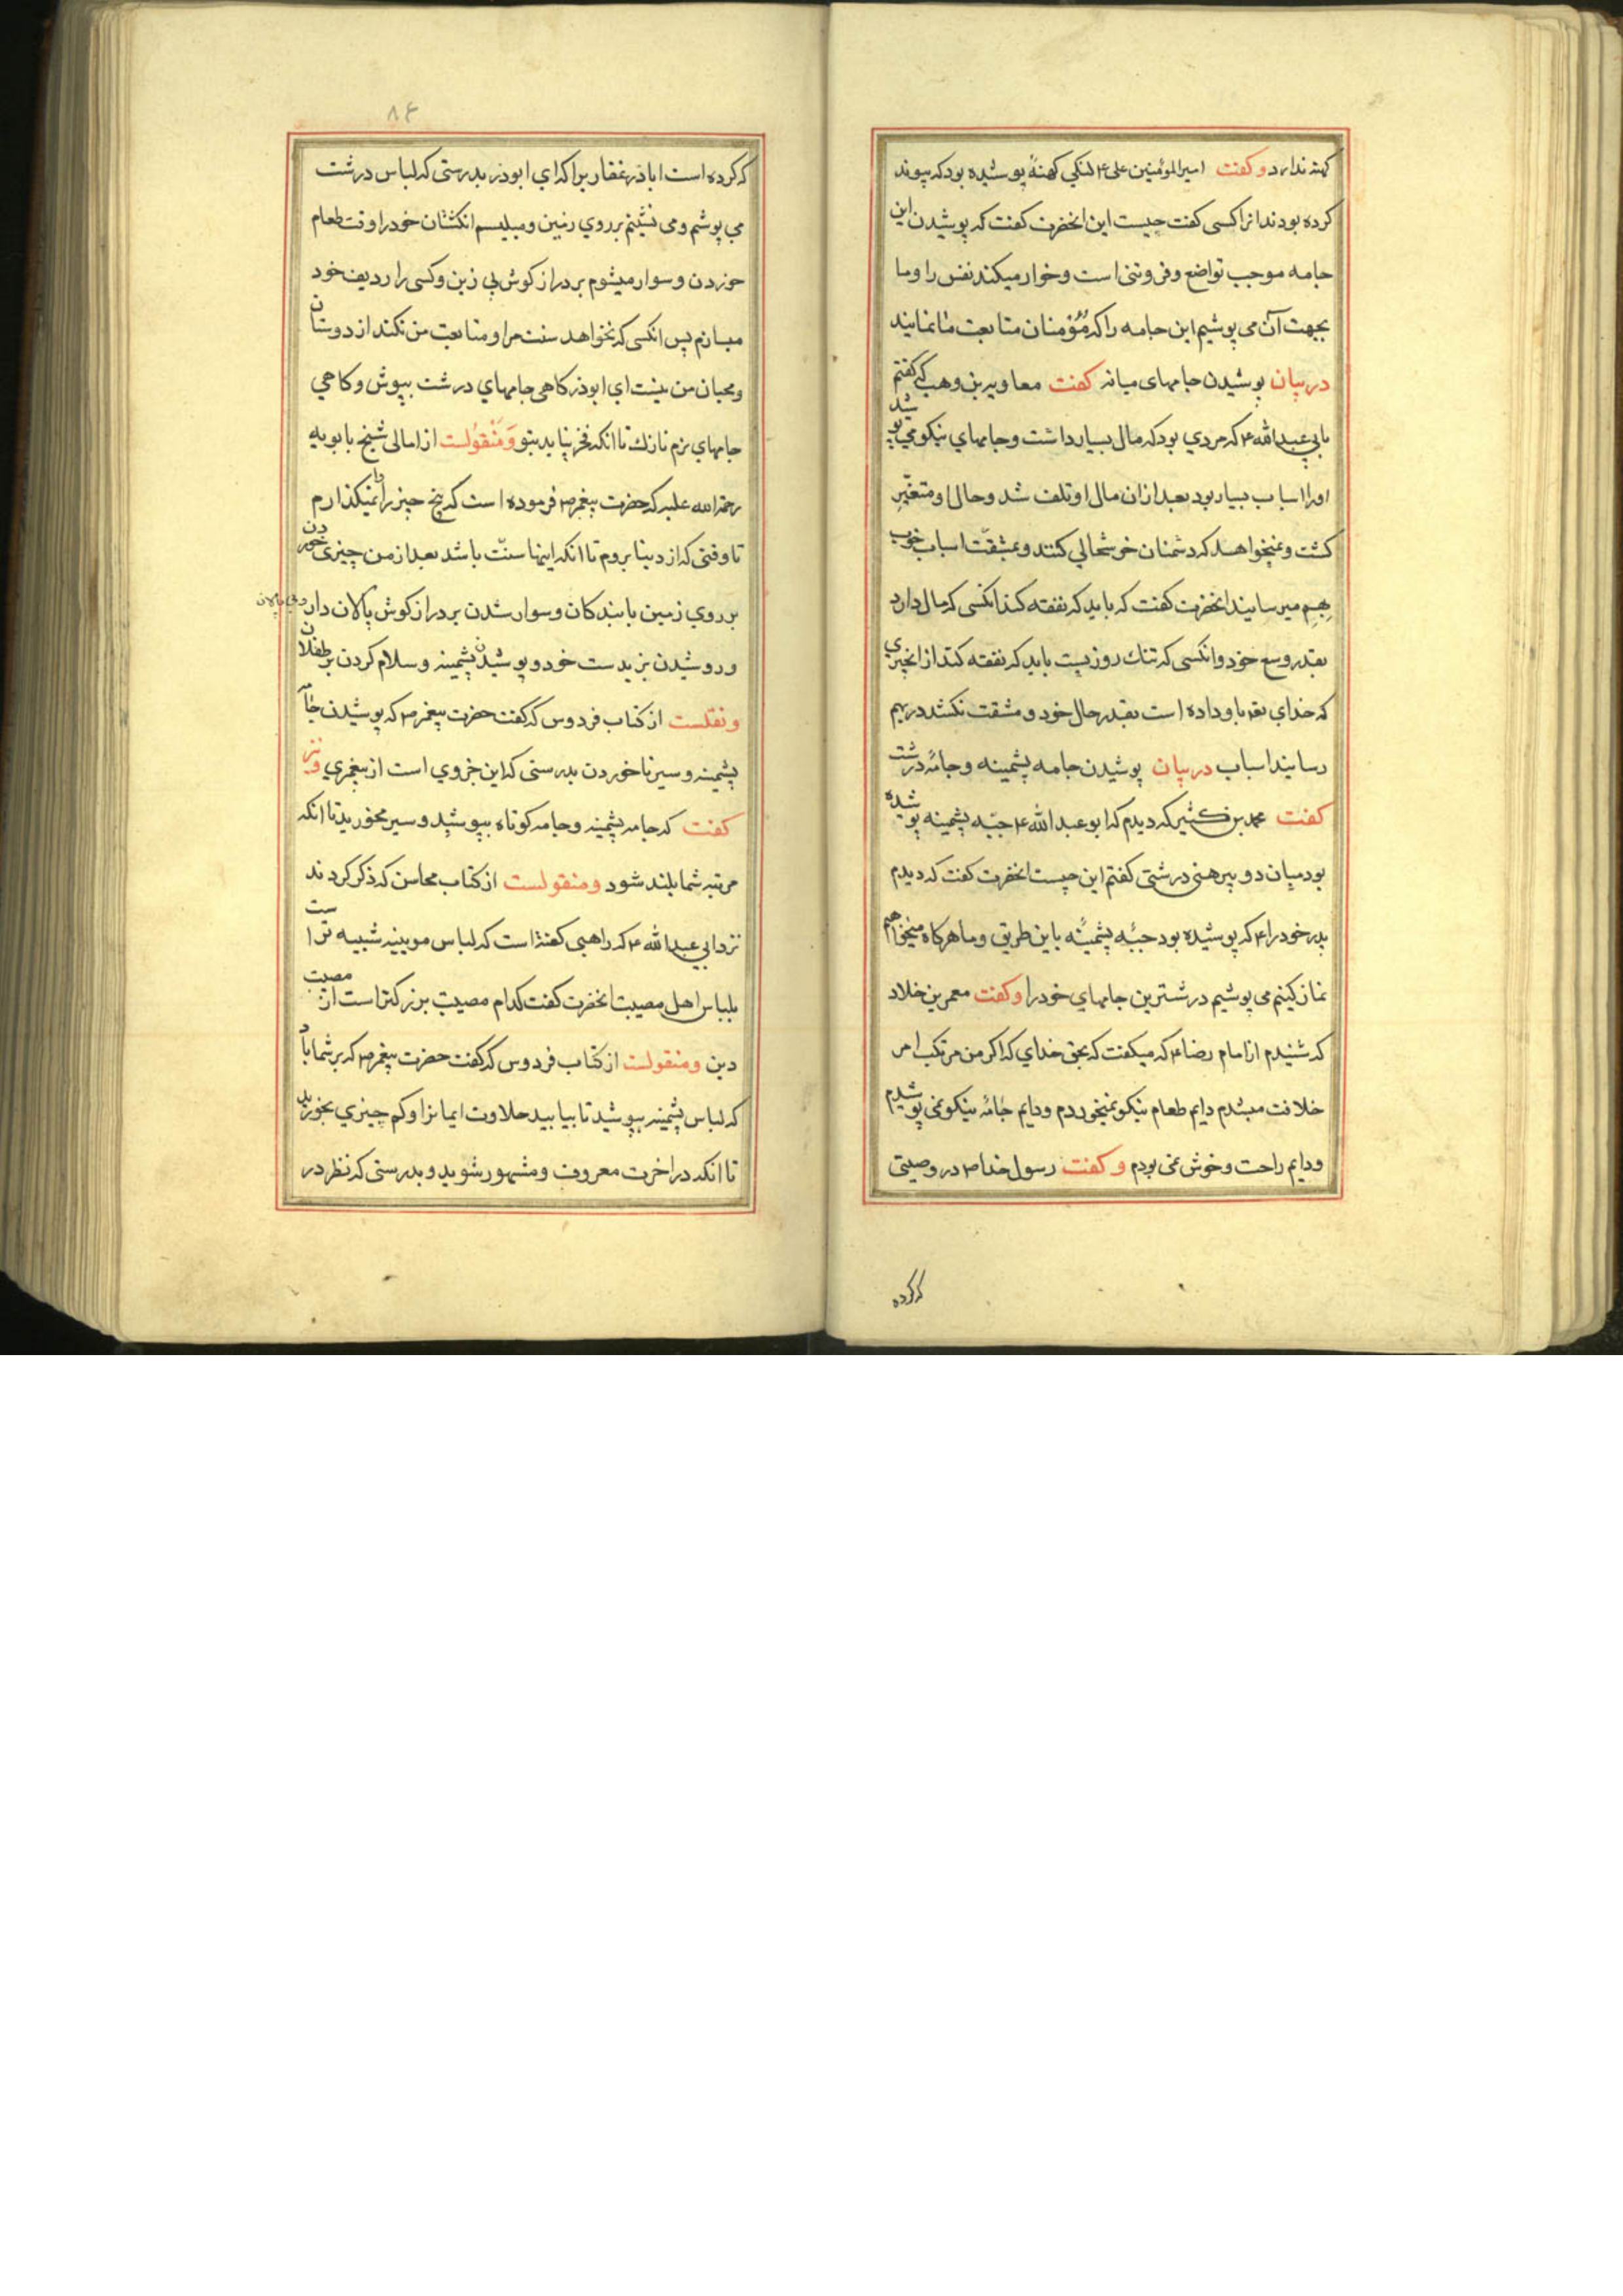 کهنه ندارد و کفت امیرالمؤمنین علی ۴ لنکی کهنهٔ پوشیده بود که پیوند
کرده بودند انرا کسی کفت چیست این انحضرت کفت که پوشیدن این
جامه موجب تواضع وفروتنی است وخوار میکند نفس را وما
بجهت آن می پوشیم این جامه را که مؤمنان متابعت ما نمایند
در بیان پوشیدن جامهای میانه کفت معاویه بن وهب که کفتم
بابی عبدالله ۴ که مردی بود که مال بسیار داشت وجامهای نیکو می پوشید
اورا اسباب بسیار بود بعد ازان مال او تلف شد وحال او متغیّر
کشت ونمیخواهد که دشمنان خوشحالی کنند وبمشقت اسباب خوب
بهم میرسایند انحضرت کفت که باید که نفقه کند انکسی که مال دارد
بقدر وسع خود وانکسی که تنك روزیست باید که نفقه کند از انچیزی
که خدای تعه باو داده است بقدر حال خود ومشقت نکشد در بهم
رسایند اسباب در بیان پوشیدن جامه پشمینه وجامهٔ درشت
کفت محمد بن کثیر که دیدم که ابو عبد الله ۴ جبّه پشمینه پوشیده
بود میان دو پیرهنی درشتی کفتم این چیست انحضرت کفت که دیدم
پدر خود را ۴ که پوشیده بود جبّه پشمینه باین طریق وما هرکاه میخواهیم
نماز کینم می پوشیم درشترین جامهای خود را وکفت معمر بن خلاد
که شنیدم از امام رضا ۴ که میکفت که بحق خدای که اکر من مرتکب امر
خلافت میشدم دایم طعام نیکو نمیخوردم ودایم جامهٔ نیکو نمی پوشیدم
ودایم راحت وخوش نمی بودم و کفت رسول خدا ص در وصیتی
که کرده
۸۴
که کرده است اباذر غفاریرا که ای ابوذر بدرستی که لباس درشت
می پوشم ومی نشینم بر روی زمین ومیلیسم انکشتان خود را وقت طعام
خوردن وسوار میشوم بر دراز کوش بی زین وکسی را ردیف خود
میسازم پس انکسی که نخواهد سنت مرا ومتابعت من نکند از دوستان
ومحبان من نیست ای ابوذر کاهی جامهای درشت بپوش وکاهی
جامهای نرم نازك تا انکه فخر نیابد بتو وَمَنْقولست از امالی شیخ بابویه
رحمة الله علیه که حضرت پیغمبر ص فرموده است که پنج چیز را وا نمیکذارم
تا وقتی که از دینا بروم تا انکه اینها سنّت باشد بعد از من چیزی خوردن
بر روی زمین با بندکان وسوار شدن بر دراز کوش پالان دار
ودوشیدن بز بدست خود وپوشیدن پشمینه وسلام کردن بر طفلان
ونقلست از کتاب فردوس که کفت حضرت پیغمبر ص که پوشیدن جامه
پشمینه وسیر ناخوردن بدرستی که این جزوی است از پیغمبری ونیز
کفت که جامه پشمینه وجامه کوتاه بپوشید وسیر مخورید تا انکه
مرتبه شما بلند شود ومنقولست از کتاب محاسن که ذکر کردند
نزد ابی عبدالله ۴ که راهبی کفته است که لباس مویینه شبیه تراست
بلباس اهل مصیبت انحضرت کفت کدام مصیبت بزرکتر است از مصیبت
دین ومنقولست از کتاب فردوس که کفت حضرت پیغمبر ص که بر شما باد
که لباس پشمینه بپوشید تا بیابید حلاوت ایمانرا وکم چیزی بخورید
تا انکه در اخرت معروف ومشهور شوید وبدرستی که نظر در